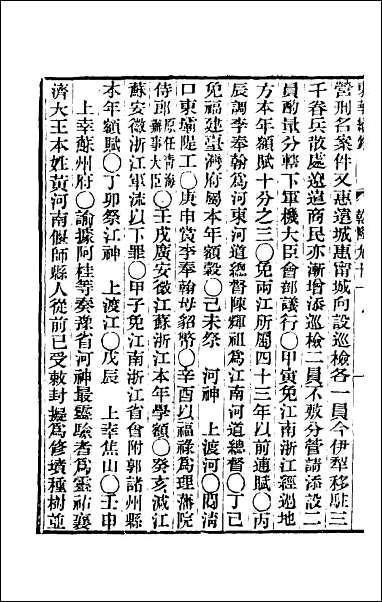 營刑名案件又惠遠城惠甯城向設巡檢各一員今伊犂移駐三
千眷兵散處遼遠商民亦漸增添巡檢二員不敷分管請添設二
員酌量分轄下軍機大臣會部議行○甲寅免江南浙江經過地
方本年額賦十分之三○免兩江所屬四十三年以前逋賦○丙
辰調李奉翰爲河東河道總督陳輝祖爲江南河道總督○丁巳
免福建臺灣府屬本年額穀○己未祭　河神　上渡河○閱淸
口東壩隄工○庚申賞李奉翰母貂幣○辛酉以福祿爲理藩院
侍郎原任靑海辦事大臣○壬戌廣安徽江蘇浙江本年學額○癸亥減江
蘇安徽浙江軍流以下罪○甲子免江南浙江省會附郭諸州縣
本年額賦○丁卯祭江神　上渡江○戊辰　上幸焦山○壬申
上幸蘇州府○諭據阿桂等奏豫省河神最靈驗者爲靈祐襄
濟大王本姓黃河南偃師縣人從前已受敕封擬爲修墳種樹並